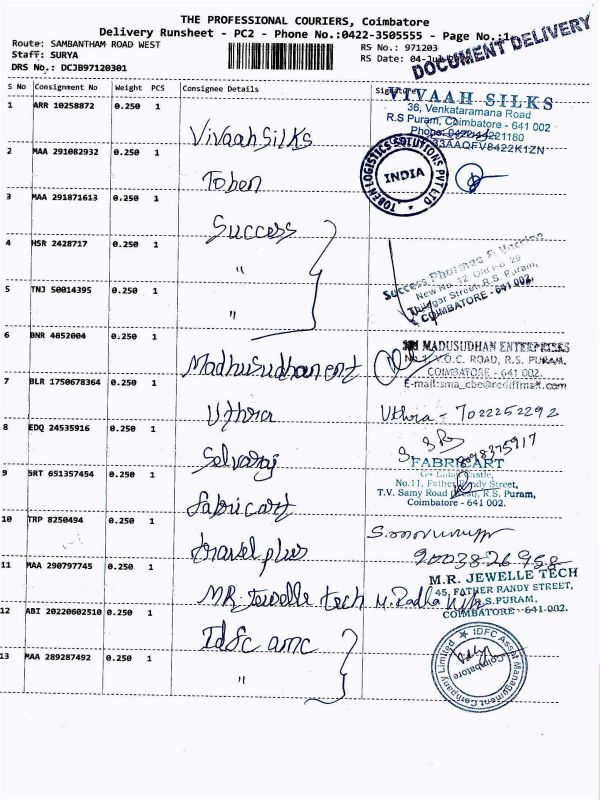 THE PROFESSIONAL COURIERS, Coimbatore
Delivery Runsheet - PC2 - Phone No.:0422-3505555 - Page No.:1
Route: SAMBANTHAM ROAD WEST
RS No.: 971203
Staff: SURYA
RS Date: 04-Jul
DRS No.: DCJB97120301
DOCUMENT DELIVERY
S No Consignment No Weight PCS Consignee Details Signature
1 ARR 10258872 0.250 1
VivaahSilks
VIVAAH SILKS
36, Venkataramana Road
R.S Puram, Coimbatore - 641 002
Phone: 1180
33AAQFV8422K1ZN
2 MAA 291082932 0.250 1
Toben
TOBEN LOGISTICS SOLUTIONS PVT LTD
INDIA
3 MAA 291871613 0.250 1
Success
4 HSR 2428717 0.250 1
"
Success Pharma &
New No. 12, Old No. 29
Street, R.S. Puram,
COIMBATORE - 641 002.
5 TNJ 50014395 0.250 1
"
6 BNR 4852004 0.250 1
Madhusudhan ent
SRI MADUSUDHAN ENTERPRISES
No. 1, V.O.C. ROAD, R.S. PURAM,
COIMBATORE - 641 002.
E-mail:sma_cbe@rediffmail.com
7 BLR 1750678364 0.250 1
Uthra
Uthra - 7022252292
8 EDQ 24535916 0.250 1
Selvaraj
9 SRT 651357454 0.250 1
fabricart
FABRIC ART
No.11, Father Randy Street,
T.V. Samy Road (West), R.S. Puram,
Coimbatore - 641 002.
10 TRP 8250494 0.250 1
travel plus
2003826958
11 MAA 290797745 0.250 1
MR. Jewelle tech
M. Radha
M.R. JEWELLE TECH
45, FATHER RANDY STREET,
R.S.PURAM,
COIMBATORE - 641-002.
12 ABI 20220602510 0.250 1
Idfc amc
IDFC Asset Management Company Limited
Coimbatore
13 MAA 289287492 0.250 1
"